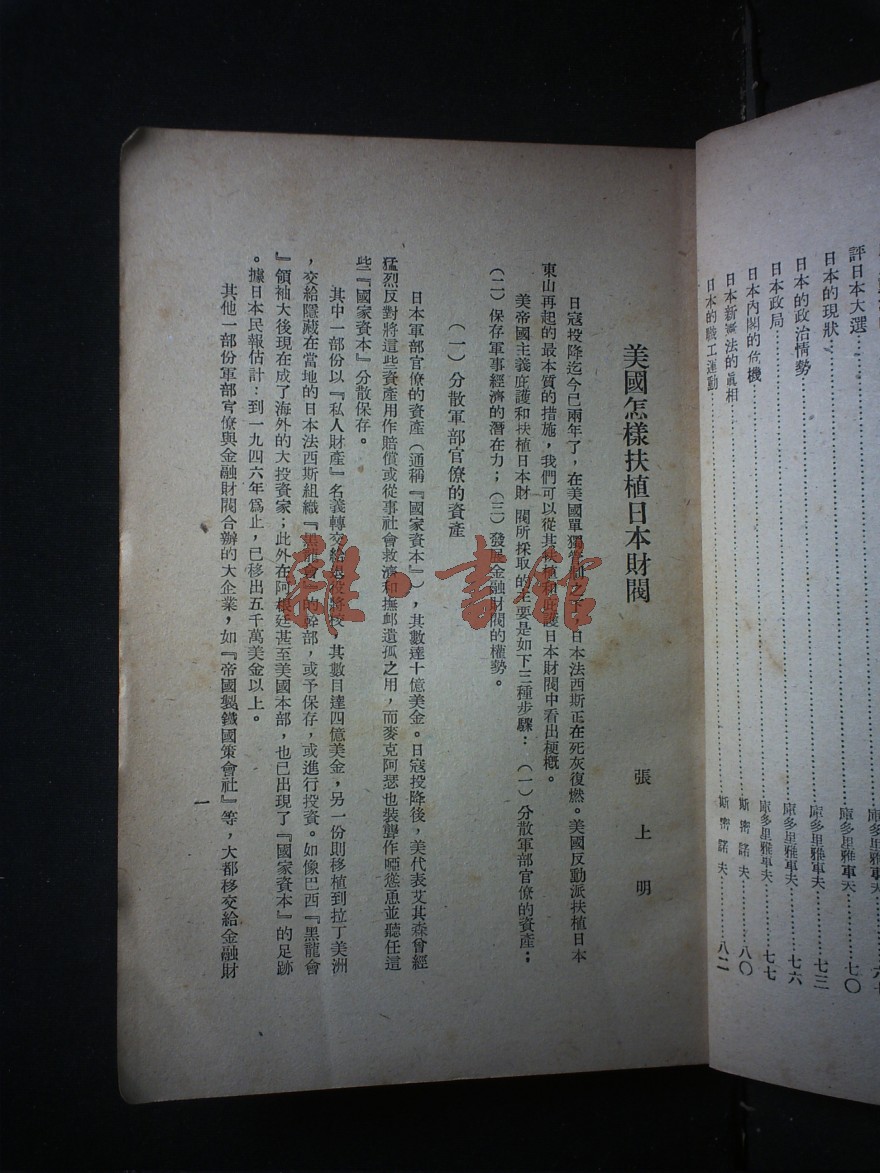 評日本大選……………………
日本的現狀……………………庫多里雅軍夫……七〇
日本的政治情勢……………………庫多里雅軍夫……七三
日本政局……………………庫多里雅軍夫……七六
日本內閣的危機……………………庫多里雅軍夫……七七
日本新憲法的眞相……………………斯密諾夫……八〇
日本的職工運動……………………斯密諾夫……八二
美國怎樣扶植日本財閥
張上明
日寇投降迄今已兩年了，在美國單獨管制之下，日本法西斯正在死灰復燃。美國反動派扶植日本
東山再起的最本質的措施，我們可以從其扶植和庇護日本財閥中看出梗概。
美帝國主義庇護和扶植日本財閥所採取的主要是如下三種步驟：（一）分散軍部官僚的資產；
（二）保存軍事經濟的潛在力；（三）發展金融財閥的權勢。
（一）分散軍部官僚的資產
日本軍部官僚的資產（通稱『國家資本』），其數達十億美金。日寇投降後，美代表艾其森曾經
猛烈反對將這些資產用作賠償或從事社會救濟和撫卹遺孤之用，而麥克阿瑟也裝聾作啞慫恿並聽任這
些『國家資本』分散保存。
其中一部份以『私人財產』名義轉交給退役將校，其數目達四億美金，另一份則移植到拉丁美洲
，交給隱藏在當地的日本法西斯組織『黑龍會』的幹部，或予保存，或進行投資。如像巴西『黑龍會
』領袖大後現在成了海外的大投資家；此外在阿根廷甚至美國本部，也已出現了『國家資本』的足跡
。據日本民報估計：到一九四六年爲止，已移出五千萬美金以上。
其他一部份軍部官僚與金融財閥合辦的大企業，如『帝國製鐵國策會社』等，大都移交給金融財
一
雜·書館